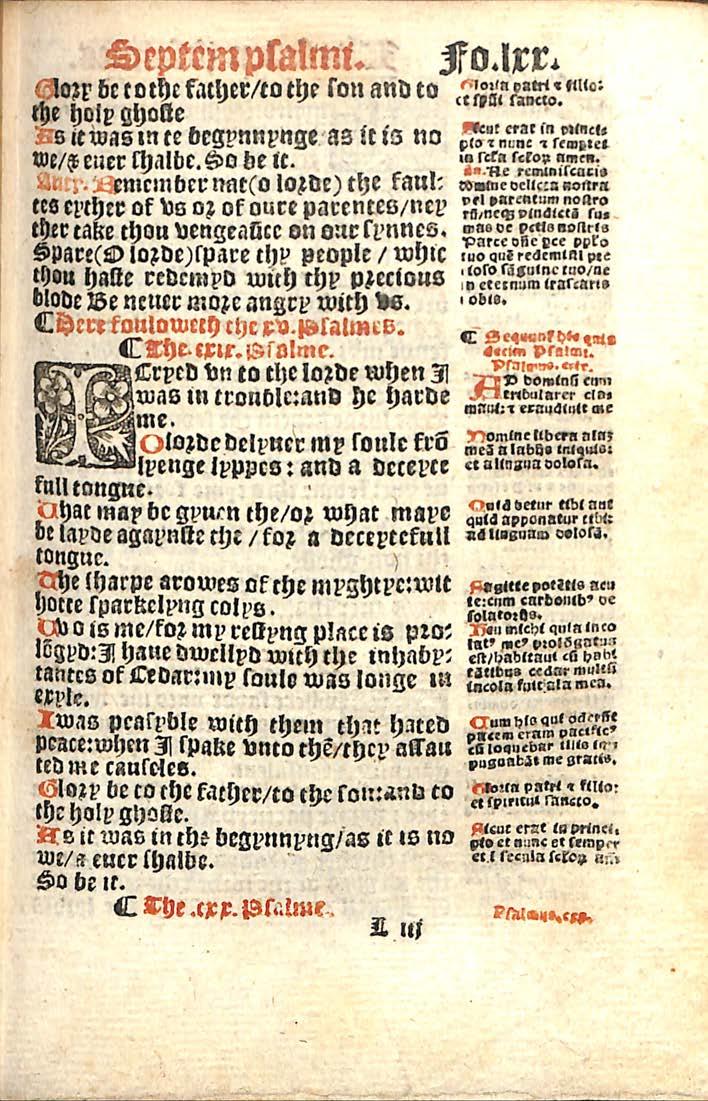 Septem psalmi. Fo.lxx.
Glory be to the father/to the son and to
the holy ghoste
As it was in te begynnynge as it is no
we/& euer shalbe. So be it.
Anty. Remember nat(o lorde) the faul:
tes eyther of vs or of oure parentes/ney
ther take thou vengeaũce on our synnes.
Spare(O lorde)spare thy people / whic
thou haste redemyd with thy precious
blode Be neuer more angry with vs.
¶Here fouloweth the xv. Psalmes.
¶The. cxix. Psalme.
I Cryed vn to the lorde when I
was in trouble:and he harde
me.
O lorde delyuer my soule frõ
lyenge lyppes : and a deceyte
full tongue.
What may be gyuen the/or what maye
be layde agaynste the / for a deceytefull
tongue.
The sharpe arowes of the myghtye:wit
hotte sparkelyng colys.
Wo is me/for my restyng place is pro:
lõgyd:I haue dwellyd with the inhaby:
tantes of Cedar:my soule was longe in
exyle.
I was peasyble with them that hated
peace:when I spake vnto thẽ/they assau
ted me causeles.
Glory be to the father/to the son:and to
the holy ghoste.
As it was in the begynnyng/as it is no
we/a euer shalbe.
So be it.
¶ The .cxx. Psalme.
L iij
Gloria patri ⁊ filio:
et spũi sancto.
Sicut erat in princi
pio ⁊ nunc ⁊ semper
in scła sclorꝫ amen.
An. Ne reminiscaris
domine delicta nostra
vel parentum nostro
rũ/neqꝫ vindictã sus
mas de pctis nostris
Parce dñe pce pplo
tuo quẽ redemisti pre
ioso sãguine tuo/ne
in eternum irascaris
obis.
¶ Sequunt hic quin
decim Psalmi.
Psalmus. cxix.
AD dominũ cum
tribularer cla
maui: ⁊ exaudiuit me
Domine libera aĩaꝫ
meã a labijs iniquis:
et a lingua dolosa.
Quid detur tibi aut
quid apponatur tibi:
ad linguam dolosã.
Sagitte potẽtis acu
te:cum carbonibꝰ de
solatorijs.
Heu michi quia inco
latꝰ meꝰ prolõgatus
est/habitaui cũ habi
tãtibus cedar multũ
incola fuit aĩa mea.
Cum his qui oderũt
pacem eram pacificꝰ
cũ loquebar illis im
pugnabãt me gratis.
Gloria patri ⁊ filio:
et spiritui sancto.
Sicut erat in princi.
pio et nunc et semper
et i secula sclorꝫ am̃
Psalmus.cxx.